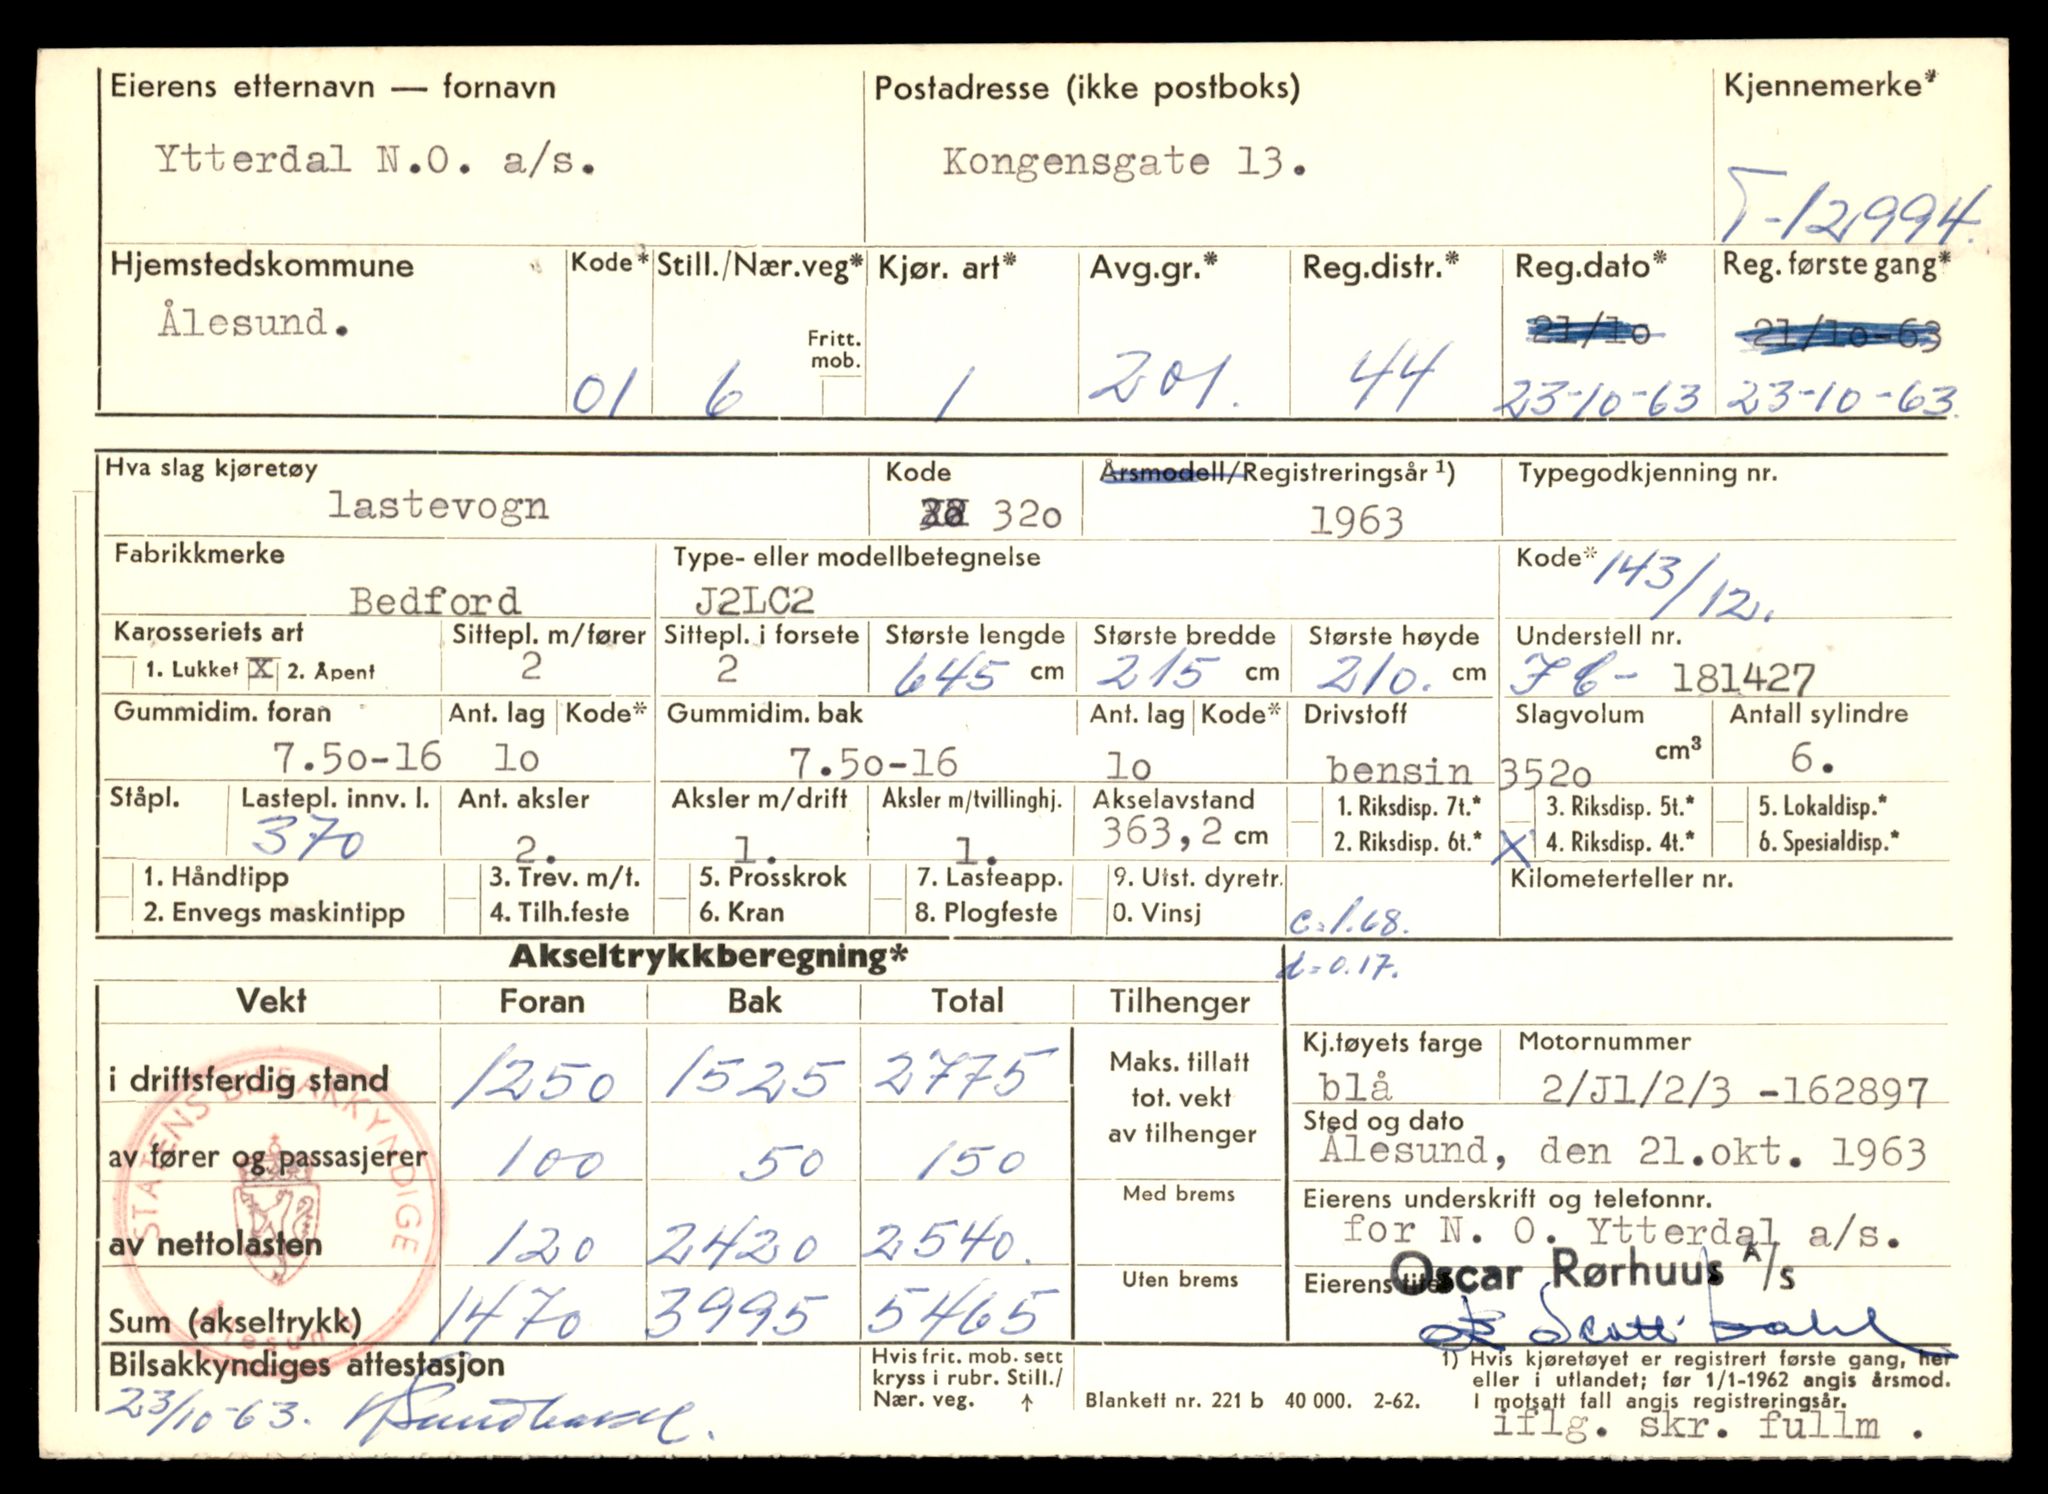 Eierens etternavn — fornavn Postadresse (ikke postboks) Kjennemerke*
Ytterdal N.O. a/s. Kongensgate 13. T-12994.
Hjemstedskommune Kode* Still./Nær.veg* Kjør. art* Avg.gr.* Reg.distr.* Reg.dato* Reg. første gang*
Ålesund. Fritt. mob. 21/10 21/10-63
01 6 1 201. 44 23-10-63 23-10-63.
Hva slag kjøretøy Kode Årsmodell/Registreringsår ¹) Typegodkjenning nr.
lastevogn 320 1963
Fabrikkmerke Type- eller modellbetegnelse Kode* 143/12.
Bedford J2LC2
Karosseriets art Sittepl. m/fører Sittepl. i forsete Største lengde Største bredde Største høyde Understell nr.
1. Lukket X 2. Åpent 2 2 645 cm 215 cm 210. cm 181427
Gummidim. foran Ant. lag Kode* Gummidim. bak Ant. lag Kode* Drivstoff Slagvolum Antall sylindre
7.50-16 10 7.50-16 10 bensin 3520 cm³ 6.
Ståpl. Lastepl. innv. l. Ant. aksler Aksler m/drift Aksler m/tvillinghj. Akselavstand 1. Riksdisp. 7t.* 3. Riksdisp. 5t.* 5. Lokaldisp.*
370 2. 1. 1. 363,2 cm 2. Riksdisp. 6t.* X 4. Riksdisp. 4t.* 6. Spesialdisp.*
1. Håndtipp 3. Trev. m/t. 5. Prosskrok 7. Lasteapp. 9. Utst. dyretr. Kilometerteller nr.
2. Envegs maskintipp 4. Tilh.feste 6. Kran 8. Plogfeste 0. Vinsj c=1.68.
Akseltrykkberegning* d=0.17.
Vekt Foran Bak Total Tilhenger
i driftsferdig stand 1250 1525 2775
Maks. tillatt
tot. vekt
av tilhenger
Kj.tøyets farge Motornummer
blå 2/J1/2/3 -162897
av fører og passasjerer 100 50 150
Sted og dato
Ålesund, den 21.okt. 1963
av nettolasten 120 2420 2540.
Med brems
Eierens underskrift og telefonnr.
for N. O. Ytterdal a/s.
Uten brems
Eierens
Oscar Rørhuus A/s
Sum (akseltrykk) 1470 3995 5465
STATENS BILSAKKYNDIGE
Ålesund
Bilsakkyndiges attestasjon
23/10-63.
Hvis frit. mob. sett
kryss i rubr. Still./
Nær. veg. ↑
Blankett nr. 221 b 40 000. 2-62.
1) Hvis kjøretøyet er registrert første gang, her
eller i utlandet; før 1/1-1962 angis årsmod.
I motsatt fall angis registreringsår.
iflg. skr. fullm .